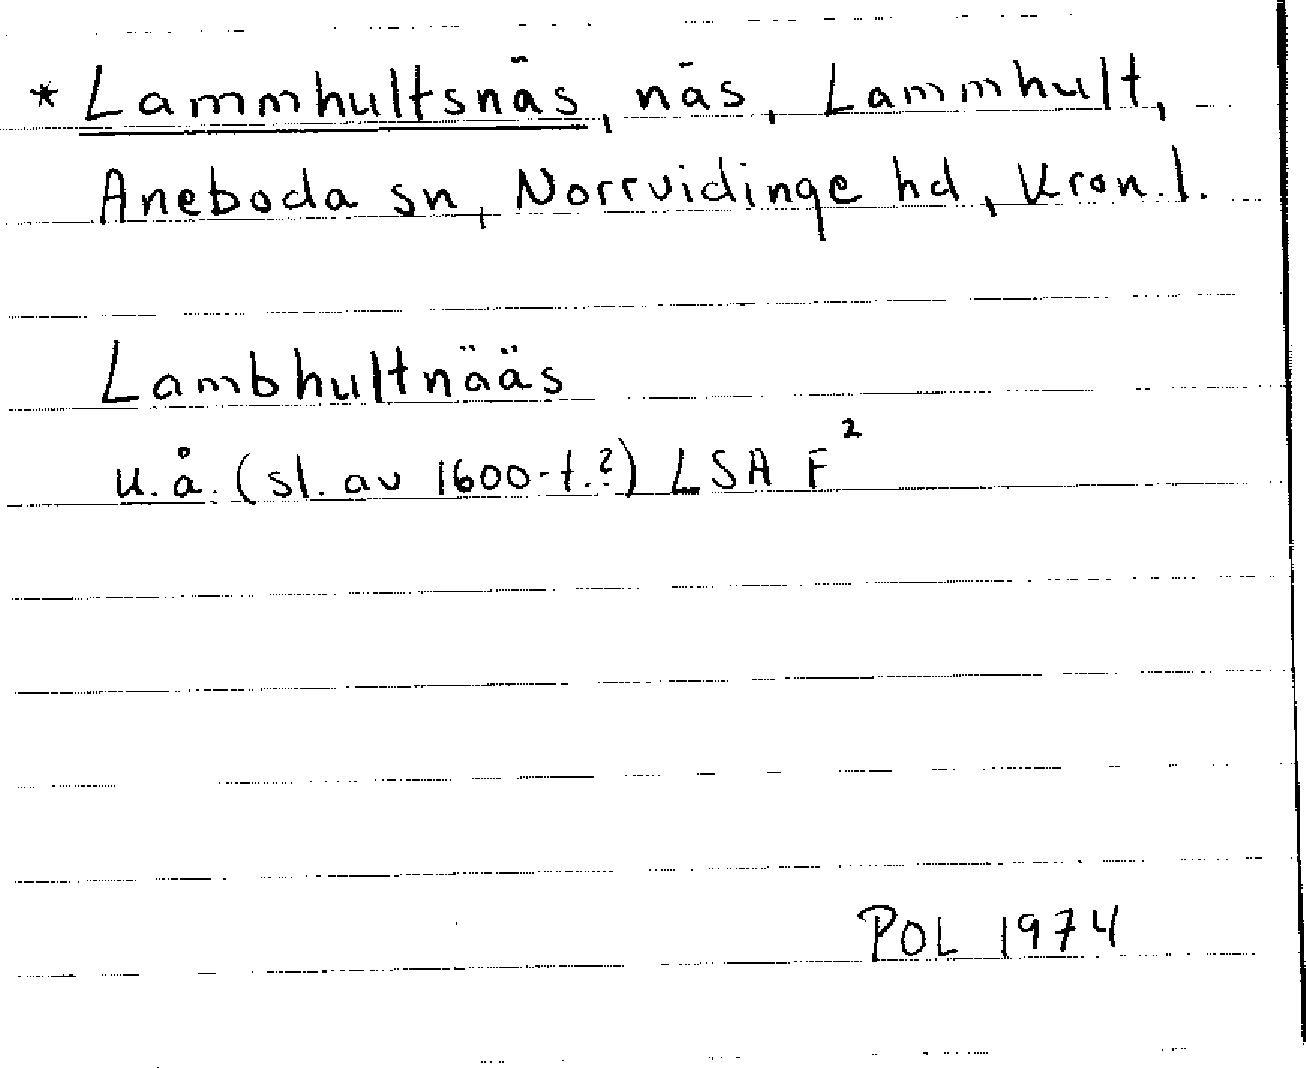 * Lammhultsnäs, näs, Lammhult,
Aneboda sn, Norrvidinge hd, Kron. l.
Lambhultnääs
u.å. (sl. av 1600-t.?) LSA F²
POL 1974